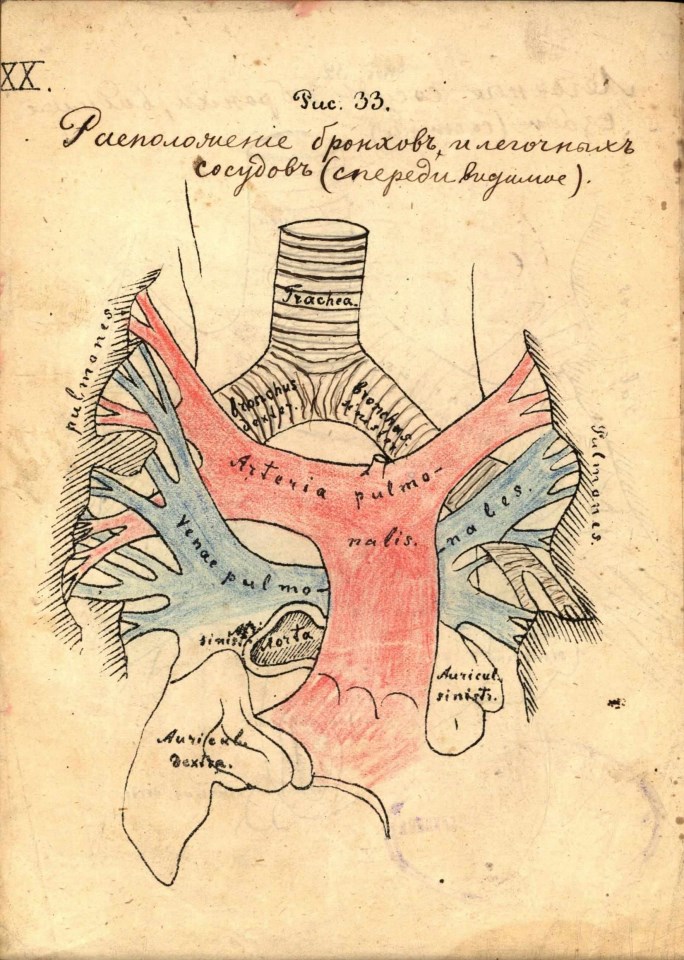 XX.
Рис. 33.
Расположеніе бронховъ и легочныхъ
сосудовъ (спереди видимое).
Trachea.
pulmones
bronchus
dextr.
bronchus
Arteria pulmo-
nalis.
Pulmones.
Venae pulmo-
nales.
sinis.
Aorta
Auricul.
sinistr.
Auricul.
dextra.